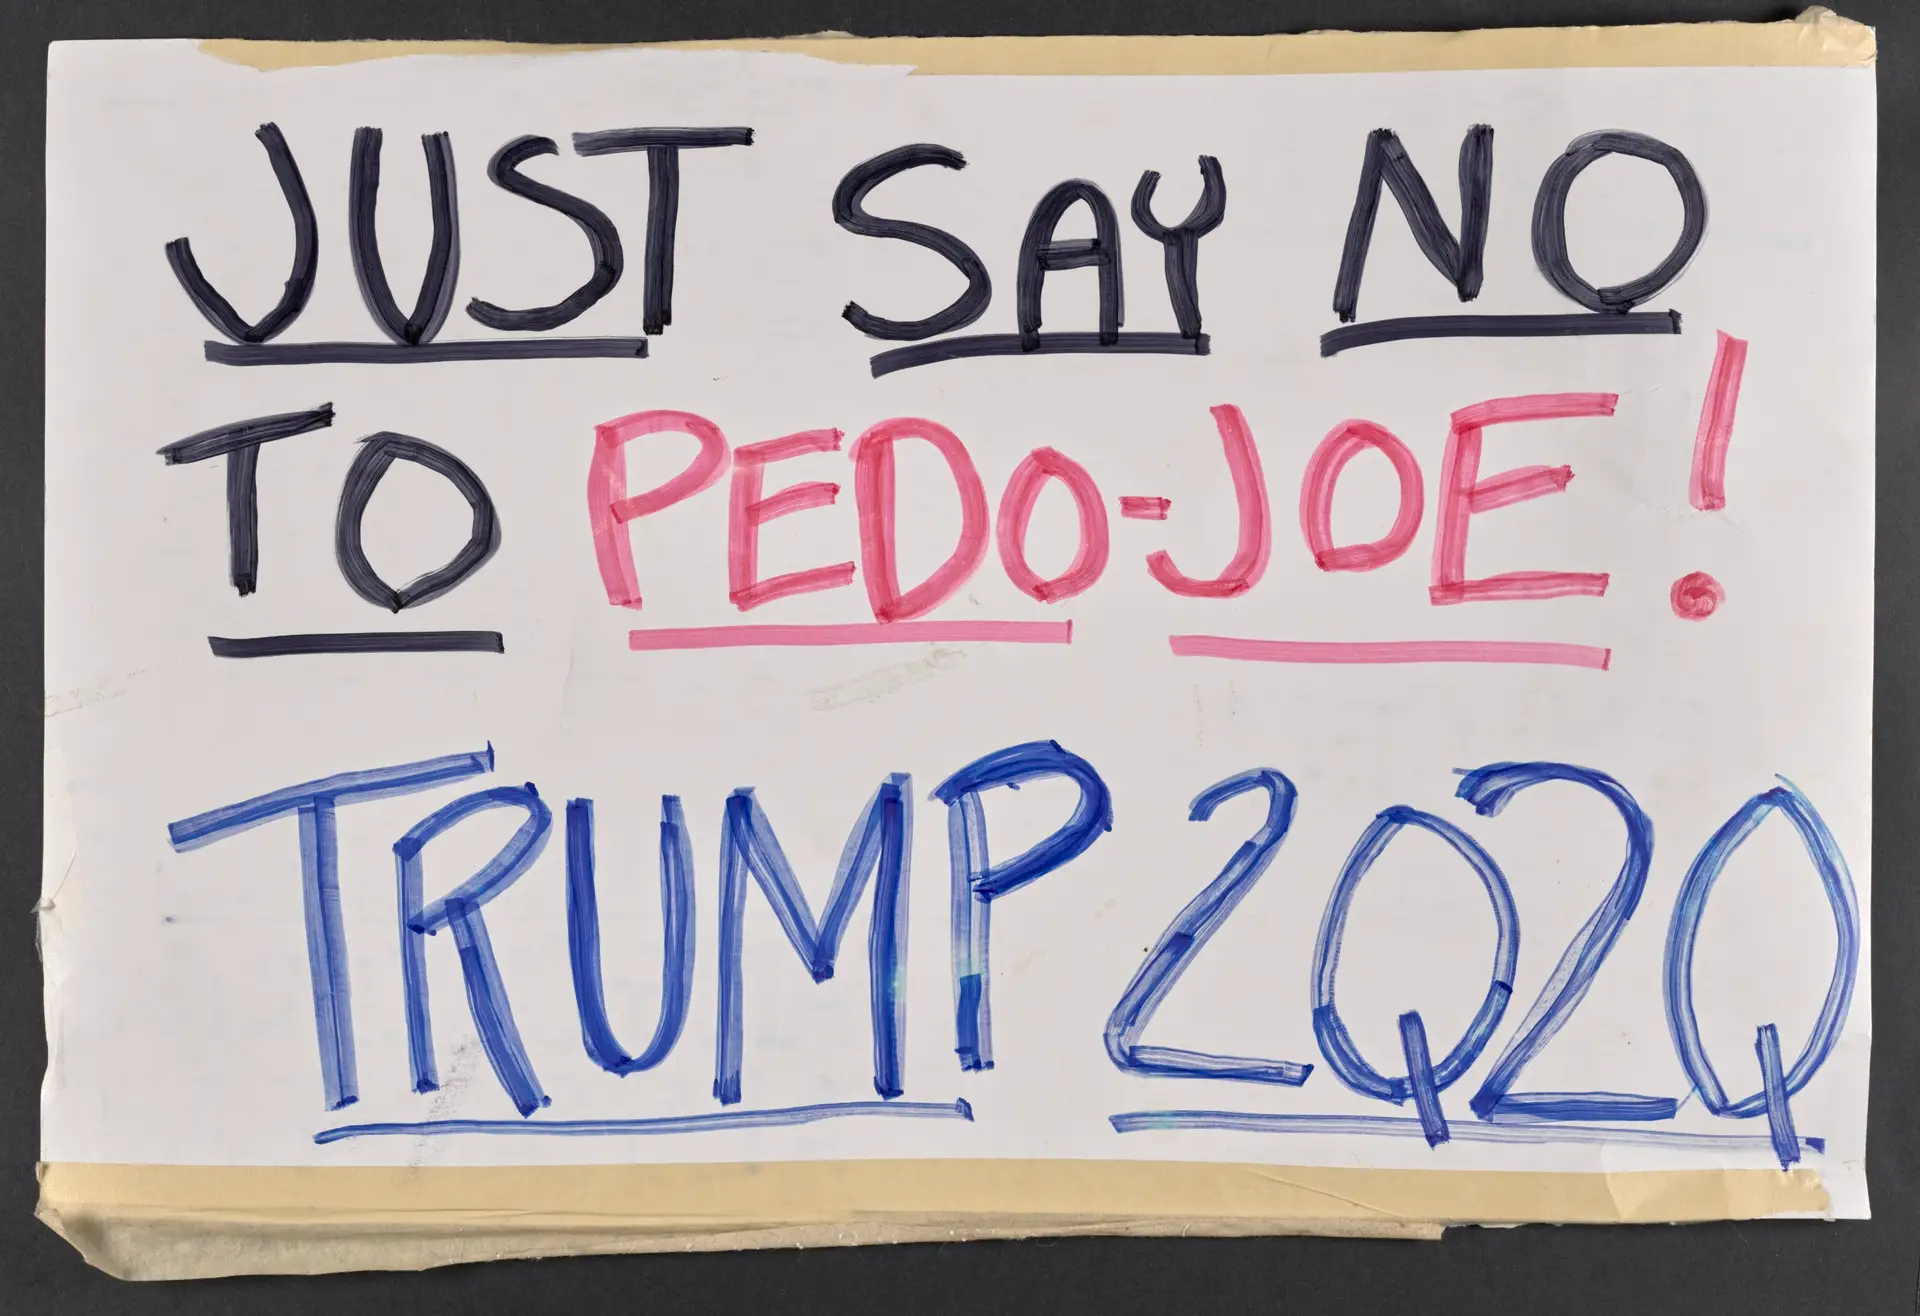 JUST SAY NO
TO PEDO-JOE!
TRUMP 2Q2Q